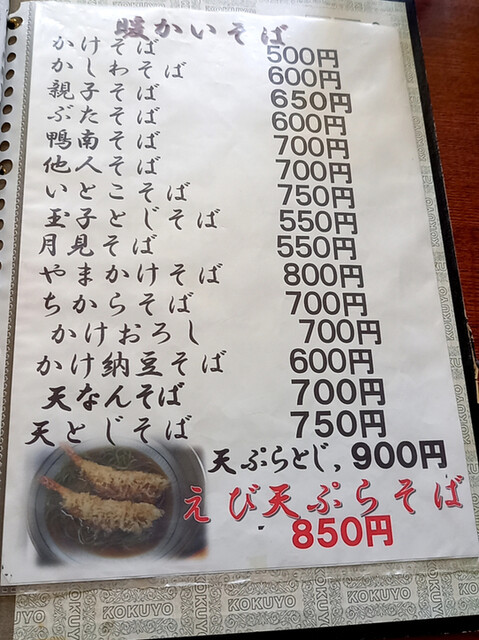 暖かいそば
かけそば 500円
かしわそば 600円
親子そば 650円
ぶたそば 600円
鴨南そば 700円
他人そば 700円
いとこそば 750円
玉子とじそば 550円
月見そば 550円
やまかけそば 800円
ちからそば 700円
かけおろし 700円
かけ納豆そば 600円
天なんそば 700円
天とじそば 750円
天ぷらとじ, 900円
えび天ぷらそば
850円
KOKUYO KOKUYO KOKUYO